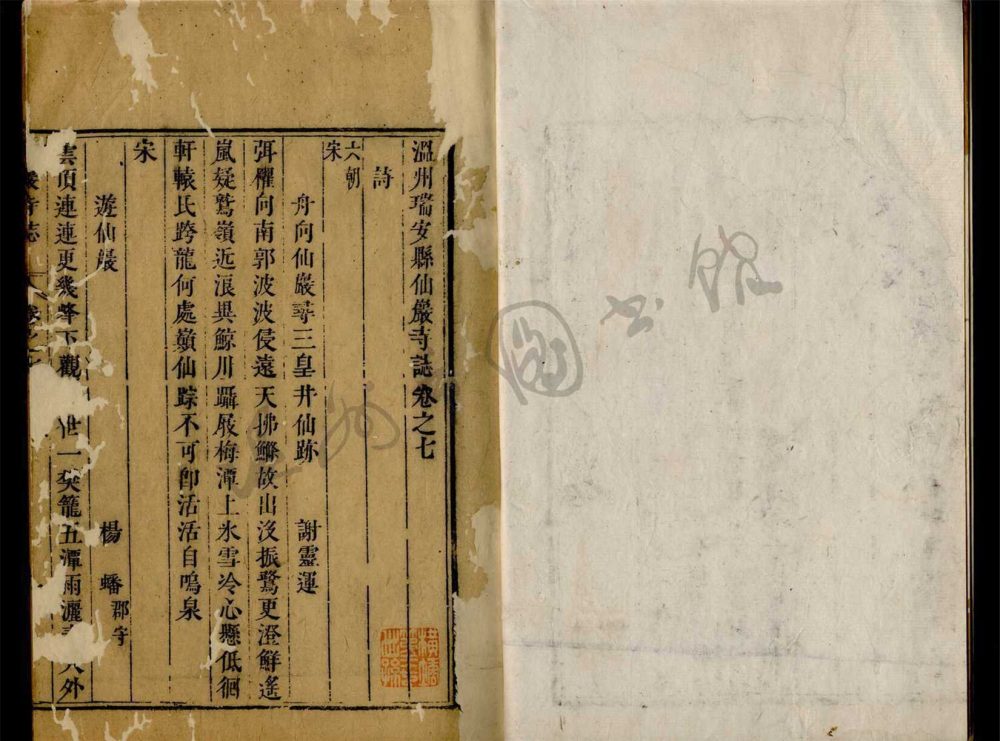 溫州瑞安縣仙巖寺誌卷之七
詩
六朝
宋
舟向仙巖尋三皇井仙跡 謝靈運
弭櫂向南郭波波侵遠天拂鰷故出沒振鷺更澄鮮遙
嵐疑鷲嶺近浪異鯨川躡屐梅潭上氷雪冷心懸低徊
軒轅氏跨龍何處巔仙踪不可卽活活自鳴泉
宋
遊仙巖 楊蟠郡守
雲頂連連更幾峰下觀 世一樊籠五潭雨灑 天外
巖寺誌 卷之七
圖書館